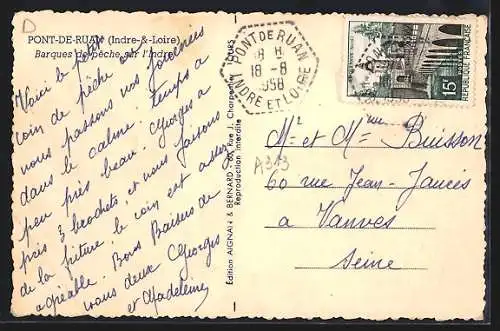 D
PONT-DE-RUAN (Indre-&-Loire)
Barques de pêche sur l'Indre
Voici le petit
coin de pêche ou
nous passons nos journées
dans le calme. temps a
peu près beau. Georges a
pris 3 brochets, et nous faisons
de la friture, le coin est assez
agréable. Bons Baisers de
nous deux Georges
et Madeleine
Edition AIGNAN & BERNARD - 60, Rue J. Charpentier - TOURS
Reproduction interdite
PONT DE RUAN
18 H
18 - 8
1958
INDRE ET LOIRE
15F
REPUBLIQUE FRANÇAISE
A313
Mr et Mme Buisson
60 rue Jean-Jaurès
a Vanves
Seine